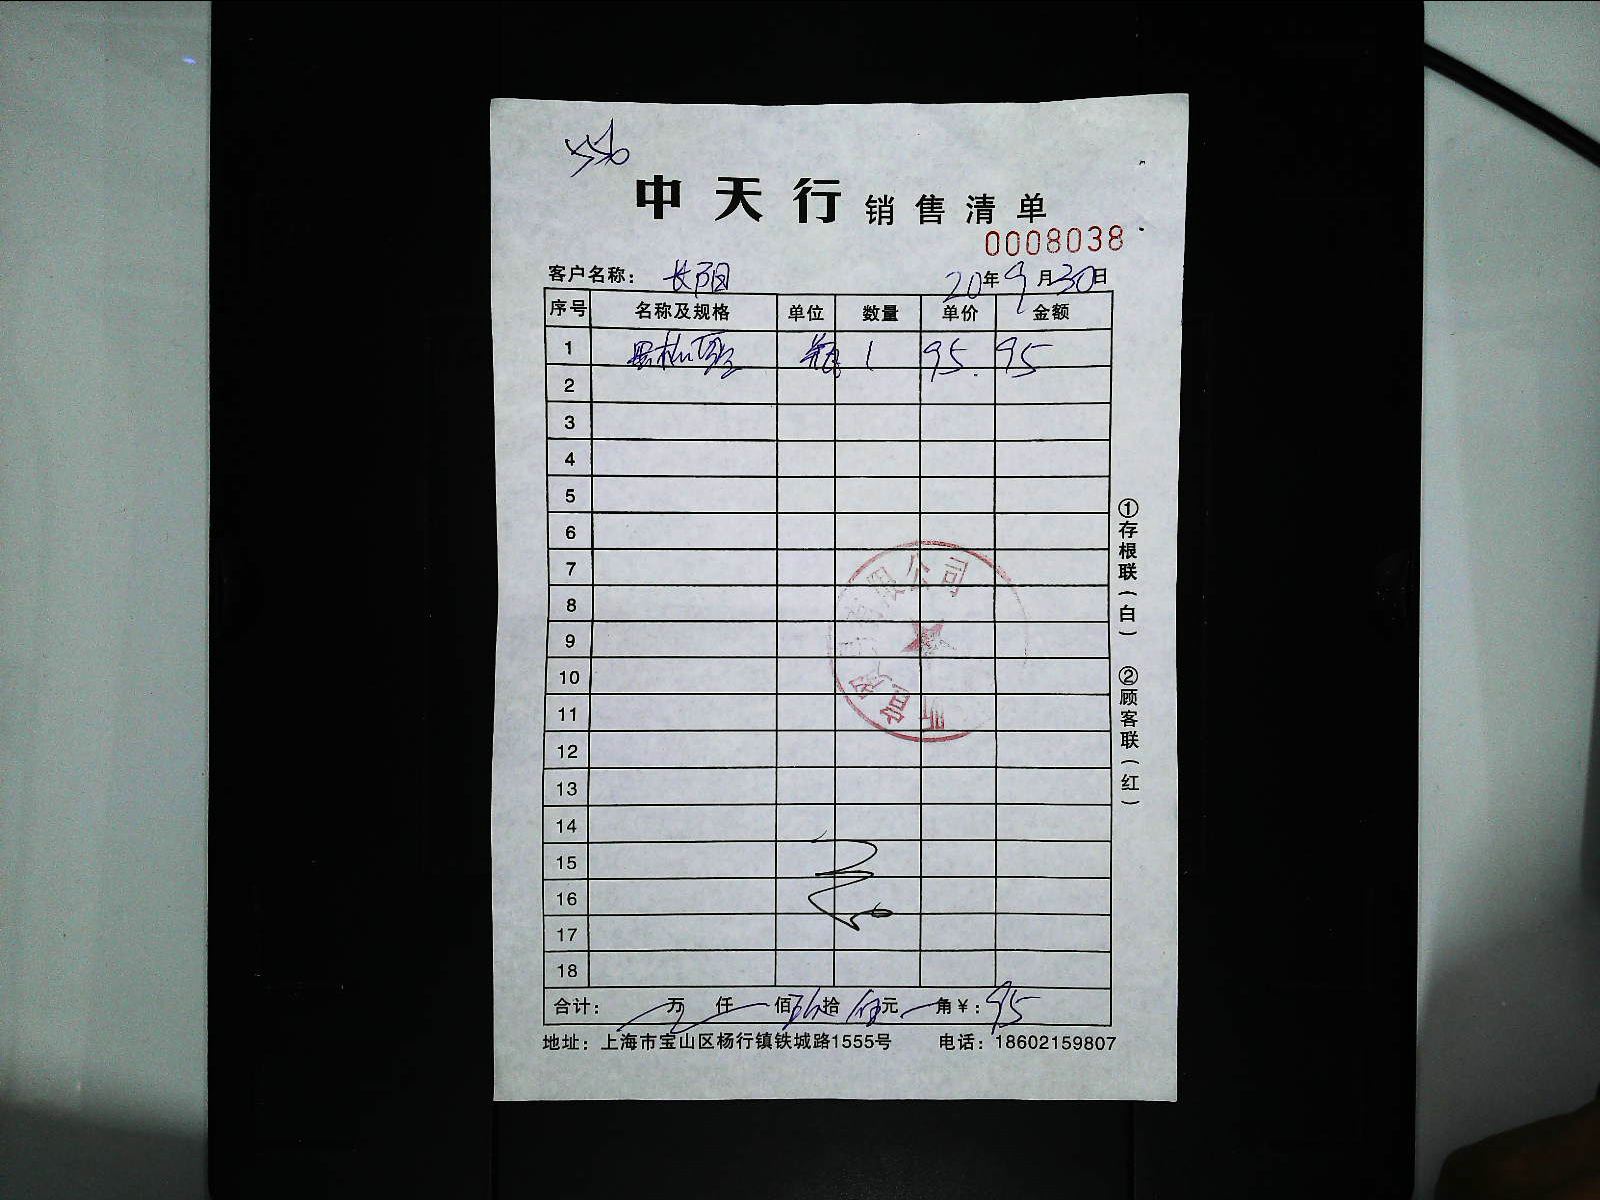 中天行销售清单
0008038
客户名称： 长阳 20年9月30日
序号 名称及规格 单位 数量 单价 金额
1 瓶 1 95 95
2
3
4
5
6
7
8
9
10
11
12
13
14
15
16
17
18
合计： 万 仟 佰 玖拾 伍元 角￥：95
地址：上海市宝山区杨行镇铁城路1555号 电话：18602159807
①存根联（白）
②顾客联（红）
有限公司